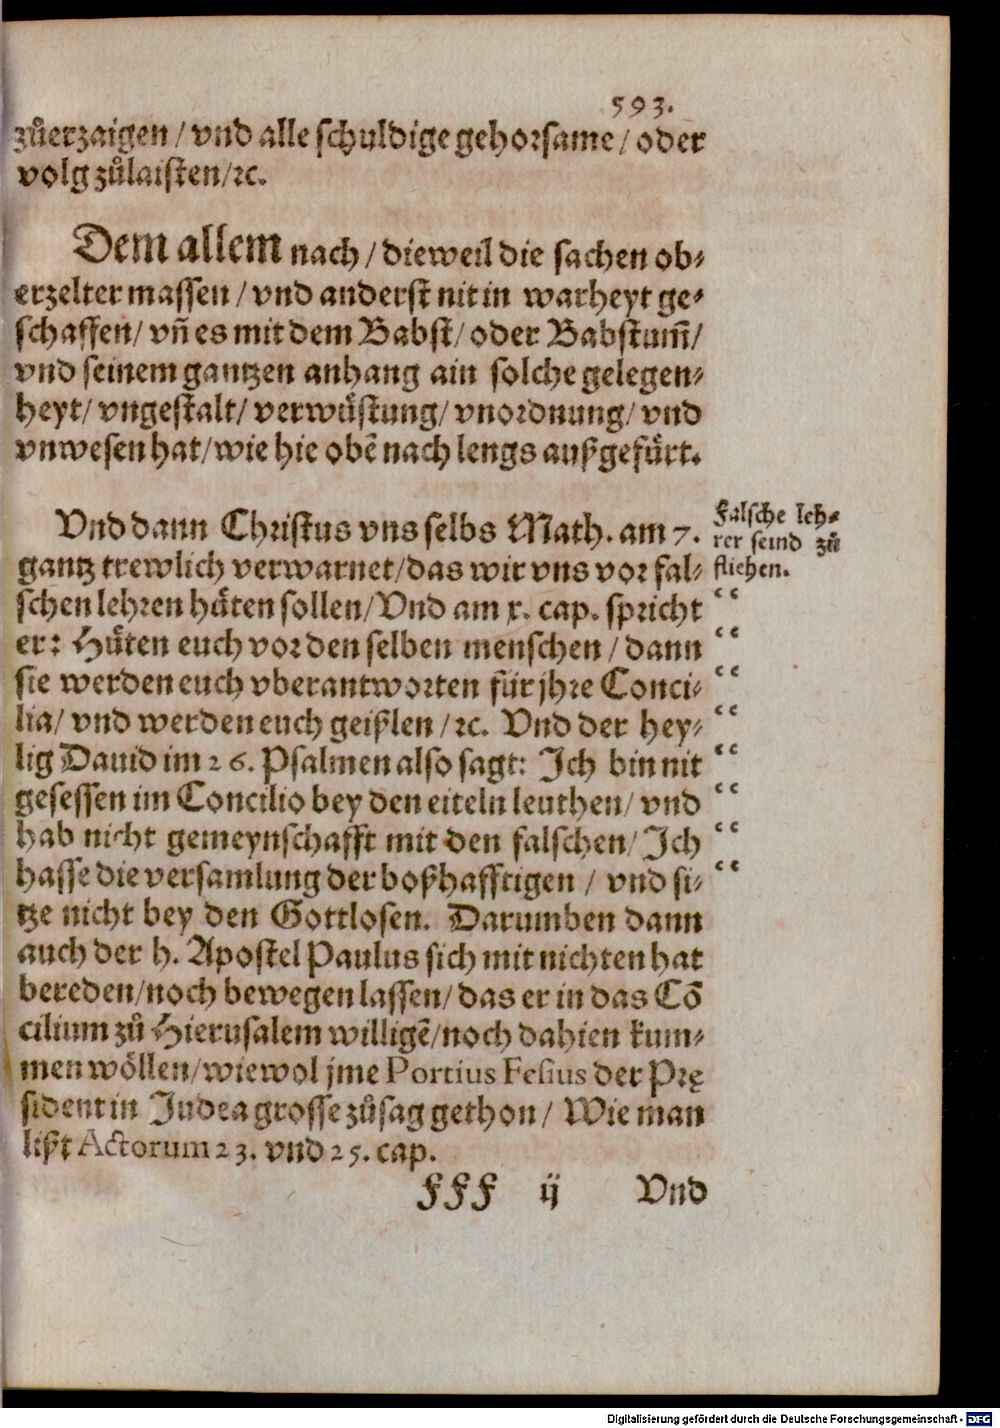 593.
zůerzaigen / vnd alle schuldige gehorsame / oder
volg zůlaisten / ꝛc.
Dem allem nach / dieweil die sachen ob⸗
erzelter massen / vnd anderst nit in warheyt ge⸗
schaffen / vñ es mit dem Babst / oder Babstum̃ /
vnd seinem gantzen anhang ain solche gelegen⸗
heyt / vngestalt / verwuͤstung / vnordnung / vnd
vnwesen hat / wie hie obẽ nach lengs außgefuͤrt.
Vnd dann Christus vns selbs Math. am 7.
gantz trewlich verwarnet / das wir vns vor fal⸗
schen lehren huͤten sollen / Vnd am x. cap. spricht
er: Huͤten euch vor den selben menschen / dann
sie werden euch vberantworten fuͤr jhre Conci⸗
lia / vnd werden euch geißlen / ꝛc. Vnd der hey⸗
lig Dauid im 26. Psalmen also sagt: Ich bin nit
gesessen im Concilio bey den eiteln leuthen / vnd
hab nicht gemeynschafft mit den falschen / Ich
hasse die versamlung der boßhafftigen / vnd si⸗
tze nicht bey den Gottlosen. Darumben dann
auch der h. Apostel Paulus sich mit nichten hat
bereden / noch bewegen lassen / das er in das Cõ
cilium zů Hierusalem willigẽ / noch dahien kum⸗
men woͤllen / wiewol jme Portius Festus der Prę
sident in Judea grosse zůsag gethon / Wie man
lißt Actorum 23. vnd 25. cap.
Falsche leh⸗
rer seind zů
fliehen.
“
“
“
“
“
“
“
“
FFF ij Vnd
Digitalisierung gefördert durch die Deutsche Forschungsgemeinschaft - DFG